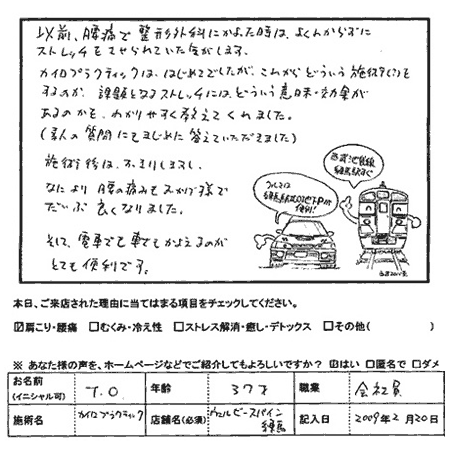 以前、腰痛で整形外科にかよた時は、よくわからずに
ストレッチをさせられていた気がします。
カイロプラクティックは、はじめてでしたが、これからどういう施術(?)を
するのか、課題となるストレッチには、どういう意味・効果が
あるのかを、わかりやすく教えてくれました。
(素人の質問にもまじめに答えていただきました)
施術後は、すっきりしますし、
なにより腰の痛みもおかげ様で
だいぶ良くなりました。
そして、電車でも車でもかよえるのが
とても便利です。
西武池袋線
練馬駅すぐ
クルマは
練馬駅北口地下Pが
便利!
本日、ご来店された理由に当てはまる項目をチェックしてください。
☑肩こり・腰痛 □むくみ・冷え性 □ストレス解消・癒し・デトックス □その他( )
※ あなた様の声を、ホームページなどでご紹介してもよろしいですか？ ☑はい □匿名で □ダメ
お名前 (イニシャル可) T.O. 年齢 37才 職業 会社員
施術名 カイロプラクティック 店舗名(必須) ウェルビースパイン練馬 記入日 2009年2月20日